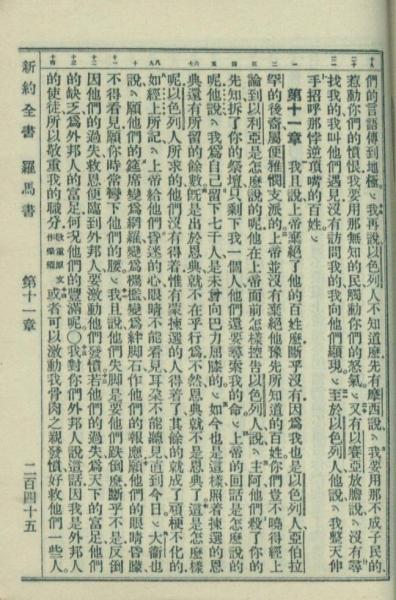 十九
二十
二一
一
二
三
四
五
六七
八九
十
十一
十二
十三
十四
們的言語傳到地極。我再說以色列人不知道麽先有摩西說我要用那不成子民的、
惹動你們的憤恨我要用那無知的民觸動你們的怒氣又有以賽亞放膽說沒有尋
找我的我叫他們遇見沒有訪問我的我向他們顯現至於以色列人他說我整天伸
手招呼那悖逆頂嘴的百姓
第十一章 我且說上帝棄絕了他的百姓麽斷乎沒有因爲我也是以色列人亞伯拉
罕的後裔屬便雅憫支派的上帝並沒有棄絕他豫先所知道的百姓你們豈不曉得經上
論到以利亞是怎麽說的呢他在上帝面前怎樣控告以色列人說主阿他們殺了你的
先知拆了你的祭壇只剩下我一個人他們還要尋索我的命上帝的回話是怎麽說的
呢他說我爲自己留下七千人是未曾向巴力屈膝的如今也是這樣照着揀選的恩
典還有所留的餘數既是出於恩典就不在乎行爲不然恩典就不是恩典了這是怎麽樣
呢以色列人所求的他們沒有得着惟有蒙揀選的人得着了其餘的就成了頑梗不化的
如經上所記上帝給他們昏迷的心眼睛不能看見耳朵不能聽見直到今日大衛也
說願他們的筵席變爲網羅變爲機檻變爲絆脚石作他們的報應願他們的眼睛昏矇
不得看見願你時常彎下他們的腰我且說他們失脚是要他們跌倒麽斷乎不是反倒
因他們的過失救恩便臨到外邦人要激動他們發憤若他們的過失爲天下的富足他們
的缺乏爲外邦人的富足何况他們的豐滿呢○我對你們外邦人說這話因我是外邦人
的使徒所以敬重我的職分敬重原文作榮耀或者可以激動我骨肉之親發憤好救他們一些人
新約全書 羅馬書 第十一章 二百四十五